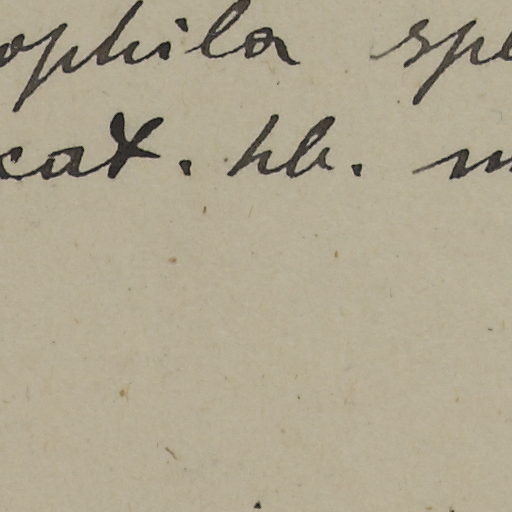 ophila spe
cat. hb. m